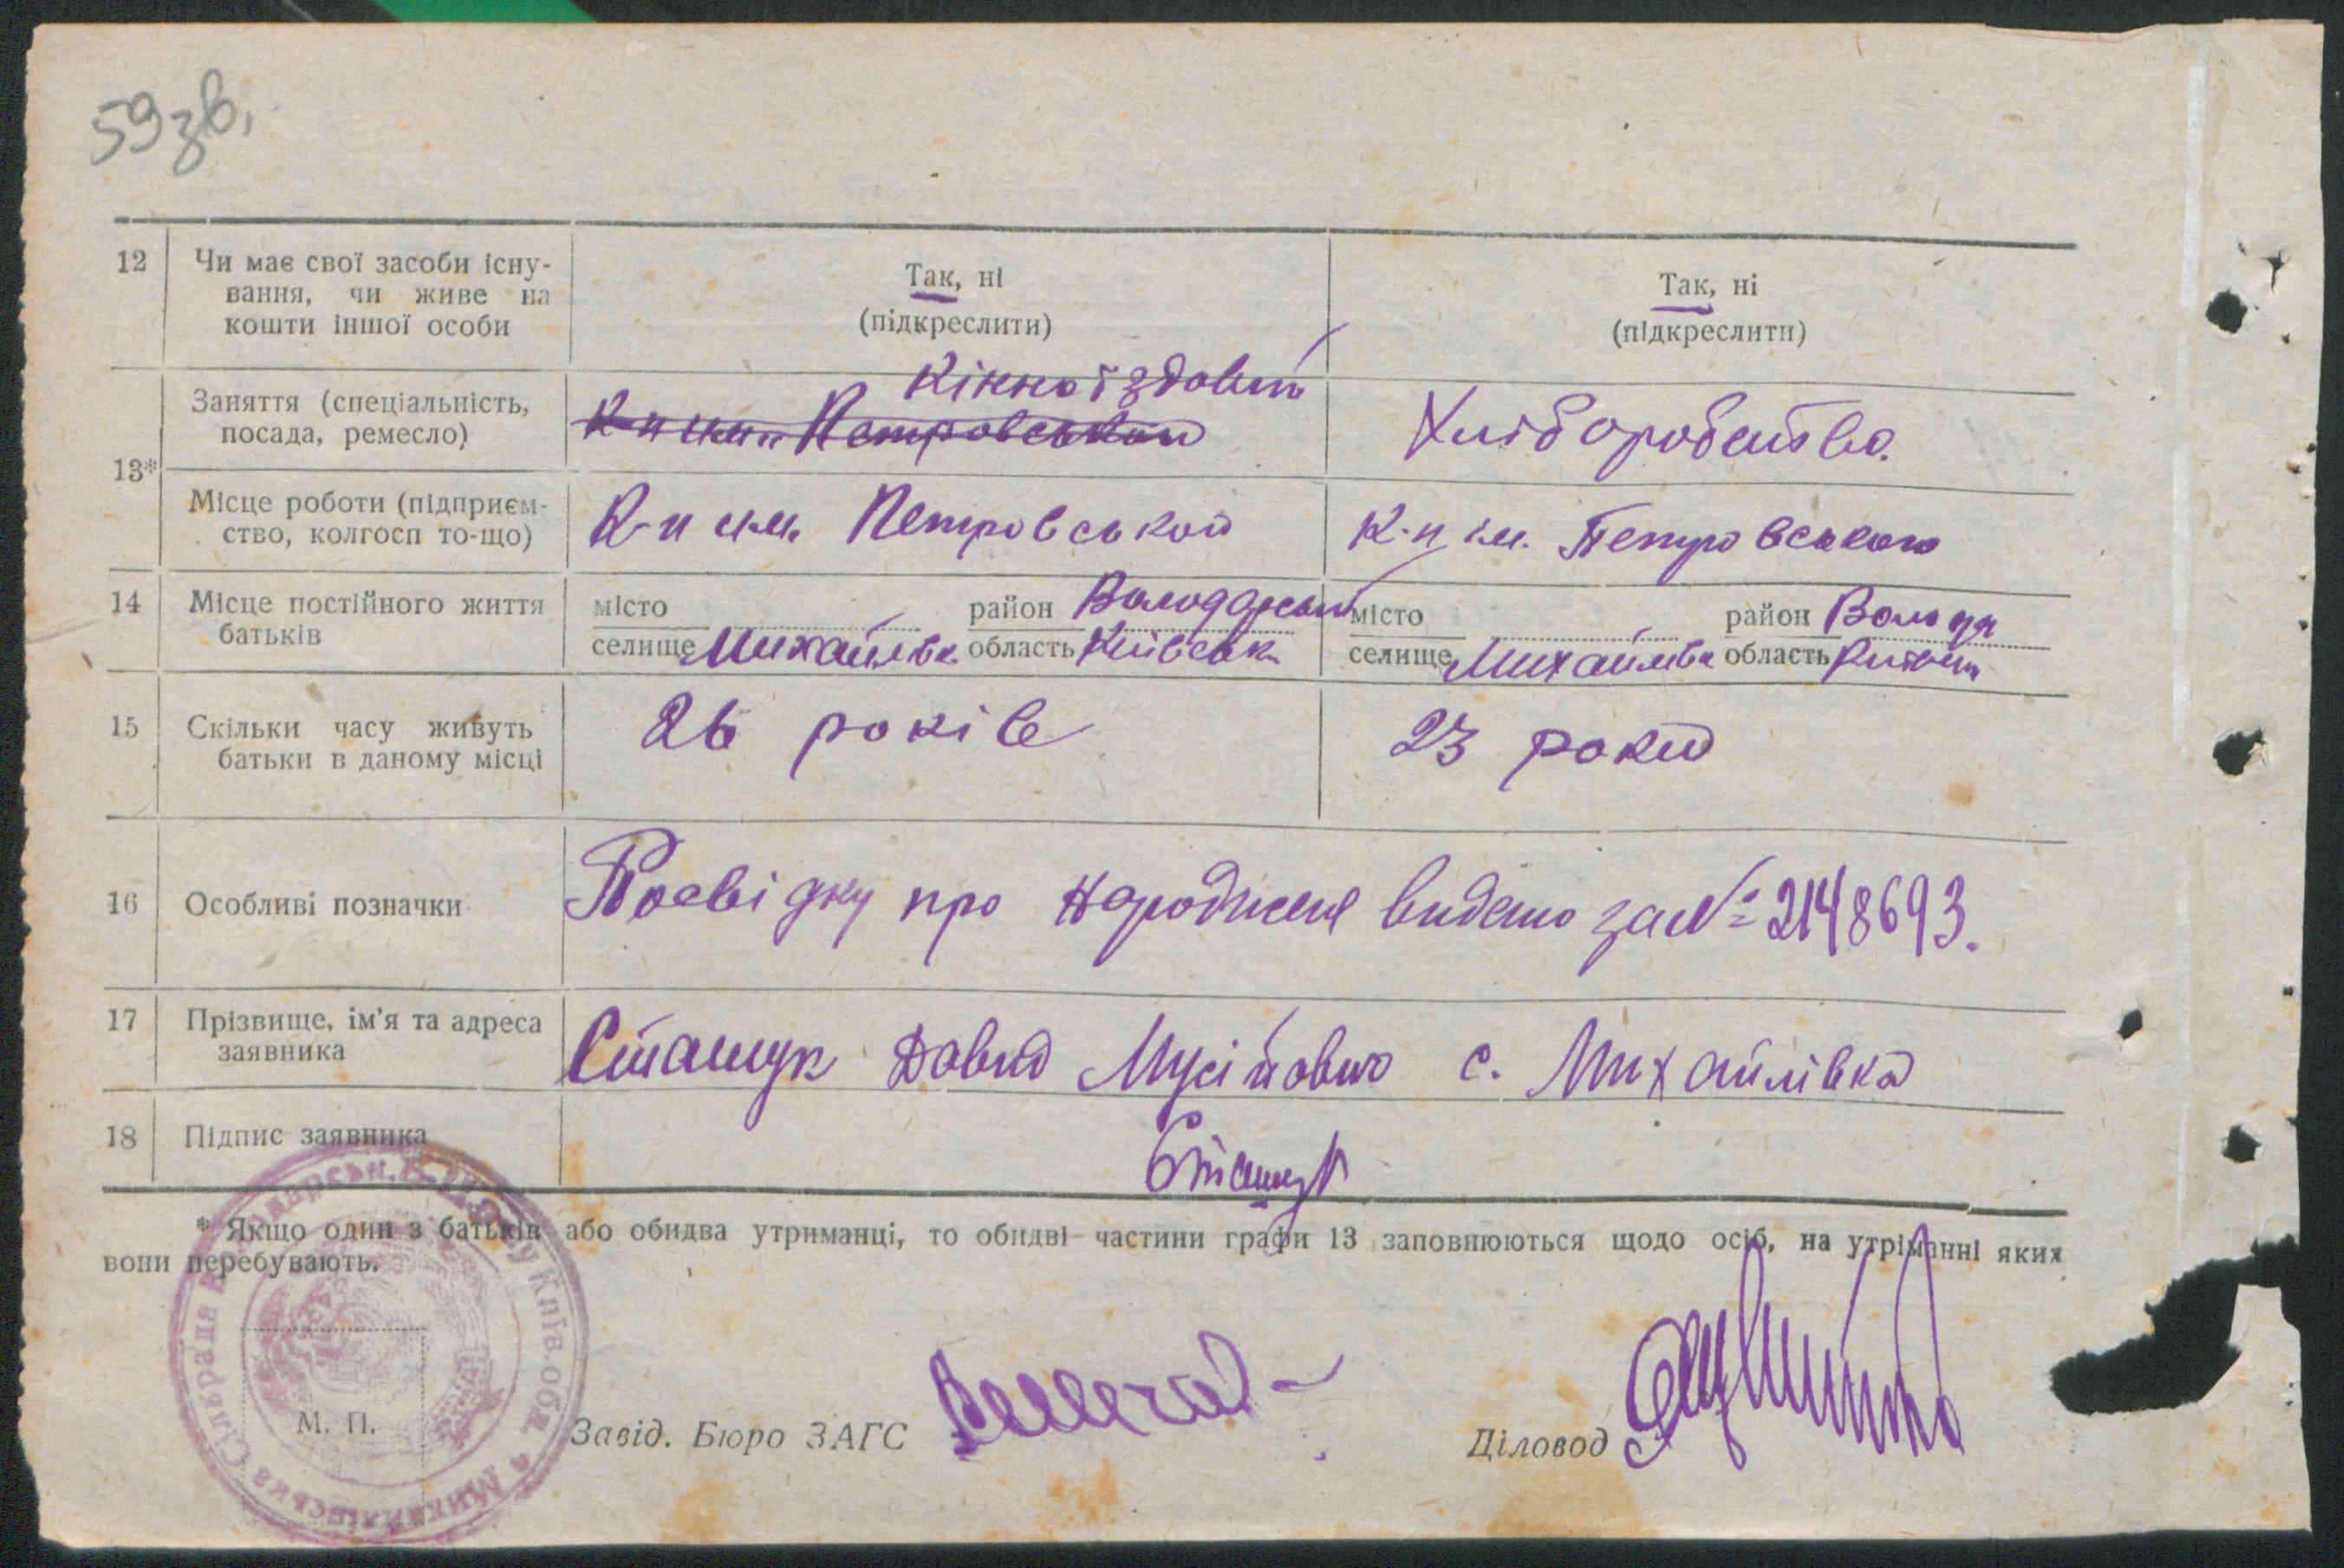 59 зв.
12 Чи має свої засоби існу-
вання, чи живе на
кошти іншої особи
Так, ні
(підкреслити)
Так, ні
(підкреслити)
13*
Заняття (спеціальність,
посада, ремесло)
Кінноїздовий
К-п им. Петровськои
Хліборобство.
Місце роботи (підприєм-
ство, колгосп то-що)
К-п им. Петровськои
К-п ім. Петровського
14 Місце постійного життя
батьків
місто район Володарськ
селище Михайлівк область Київськ
місто район Волода
селище Михайлівк область
15 Скільки часу живуть
батьки в даному місці
26 років
23 роки
16 Особливі позначки
Посвідку про народженя видано за № 2148693.
17 Прізвище, ім'я та адреса
заявника
Сташук Давид Мусійович с. Михайлівка
18 Підпис заявника
Сташук
* Якщо один з батьків або обидва утриманці, то обидві частини графи 13 заповнюються щодо осіб, на утріманні яких
вони перебувають.
М. П.
Михайлівська Сільрада
Київ. обл.
Завід. Бюро ЗАГС
Діловод